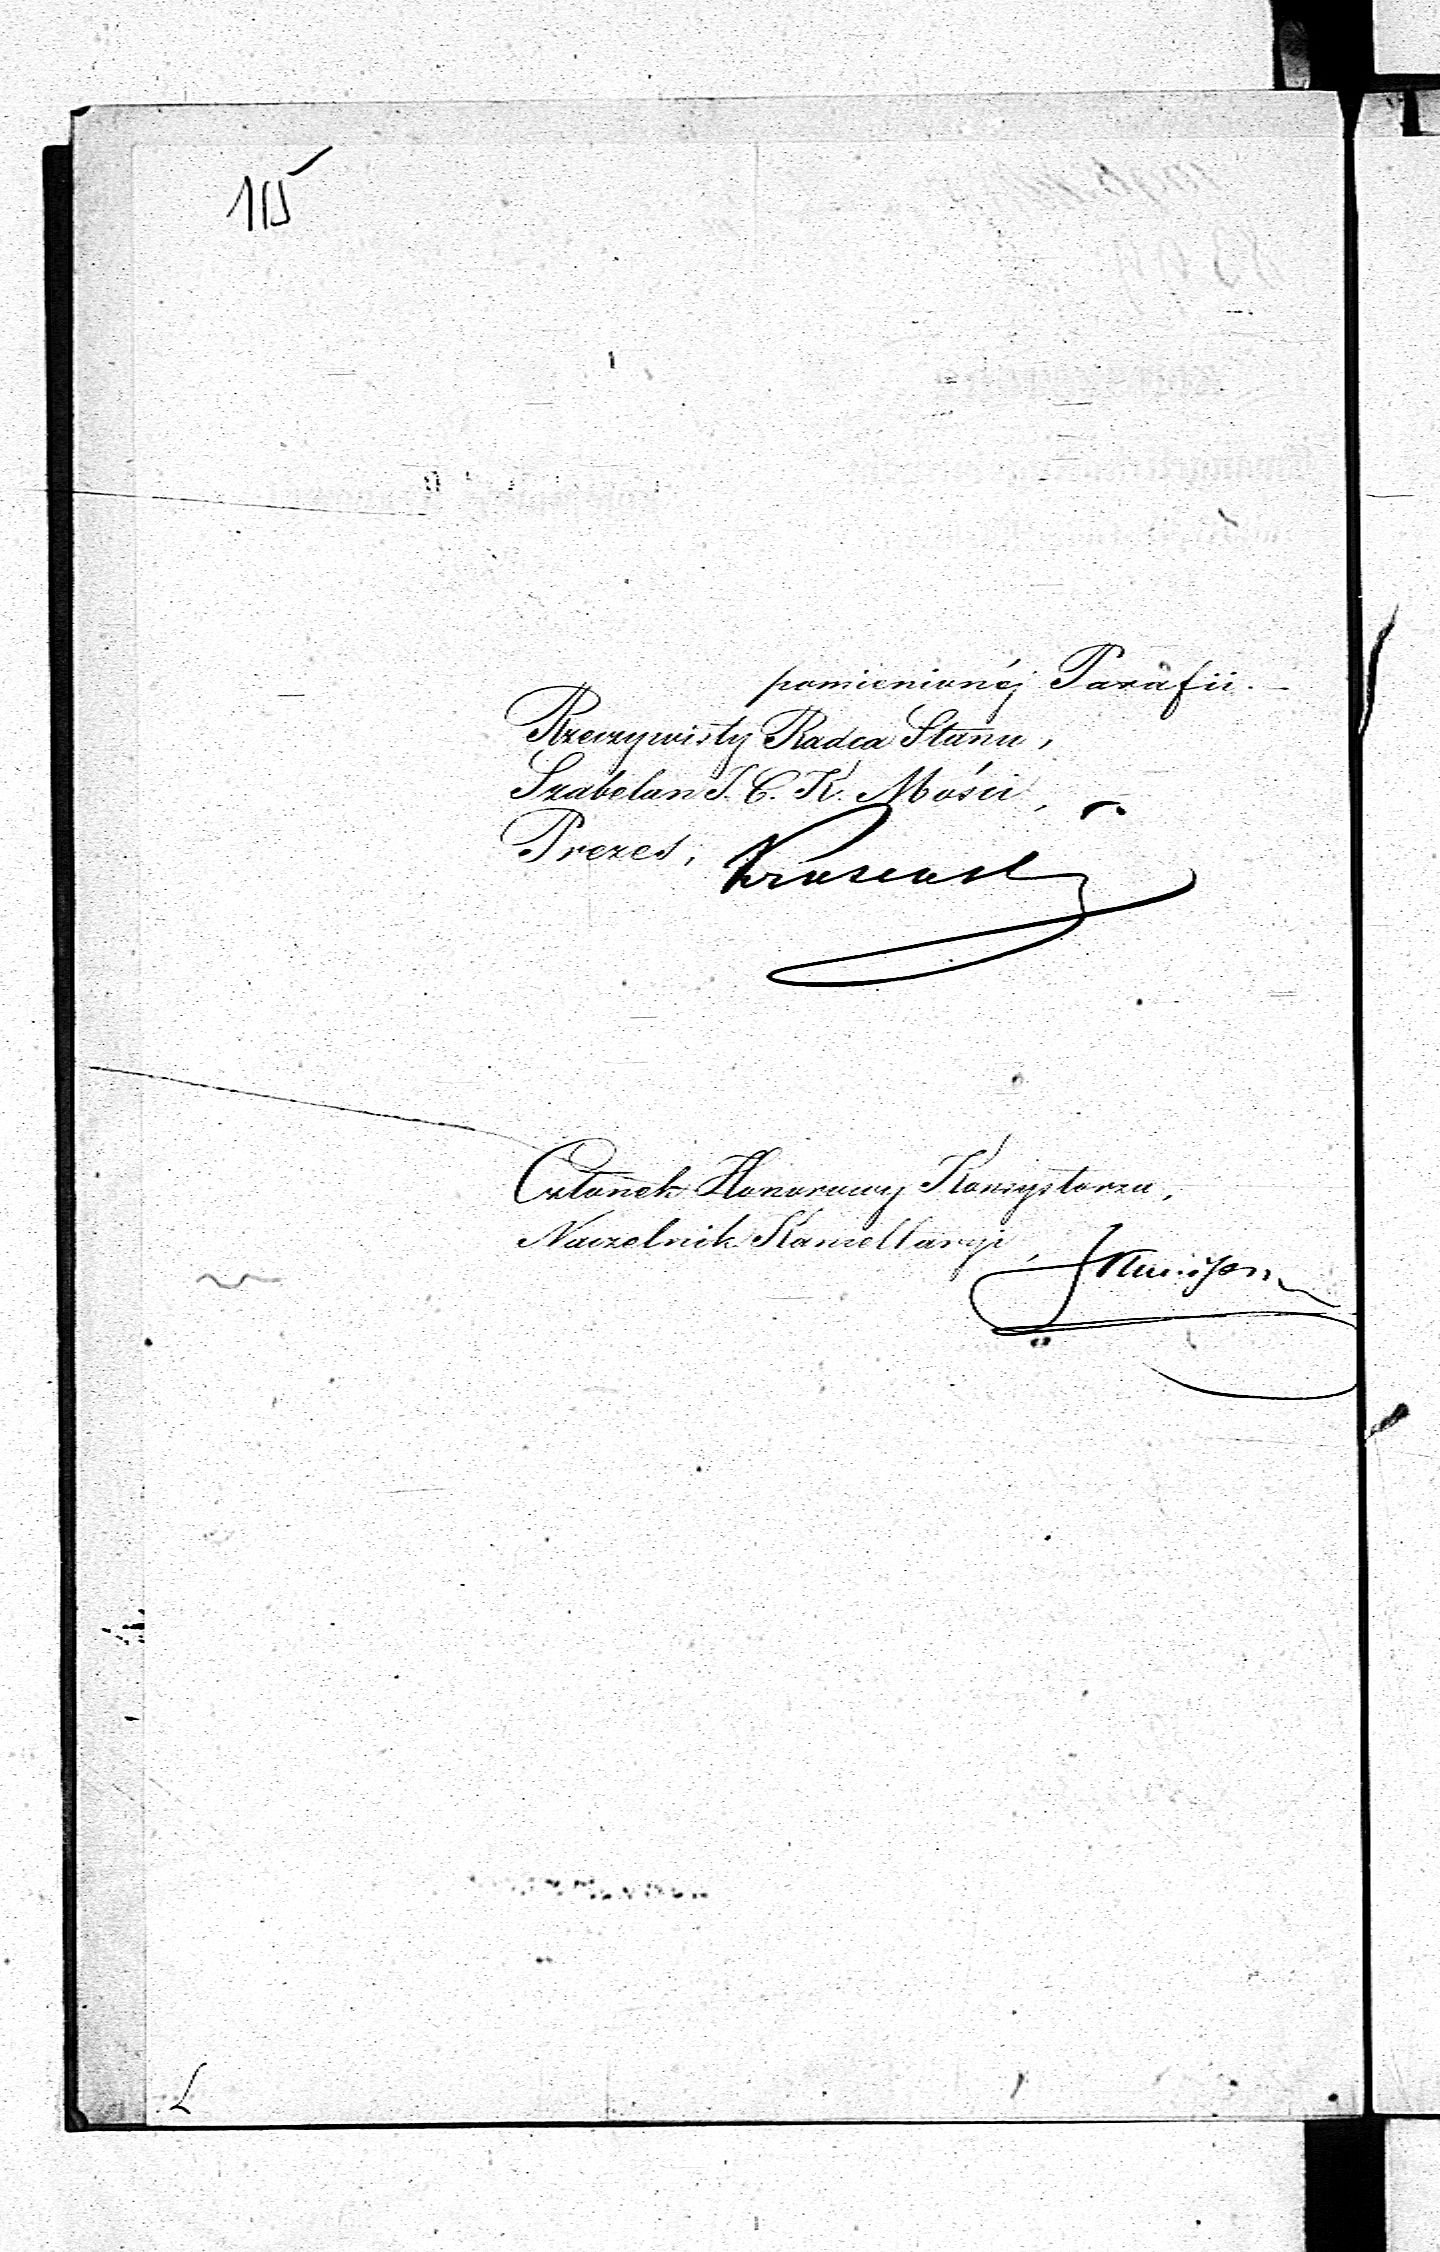 115
pomienionéj Parafii. —
Rzeczywisty Radca Stanu,
Szabelan J. C. K. Mości,
Prezes,
Członek Honorowy Konsystorza,
Naczelnik Kancellaryi,